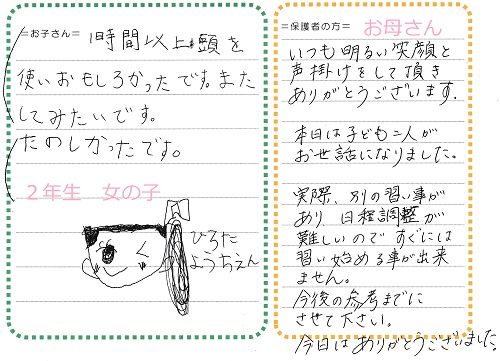 =お子さん=
1時間以上頭を
使いおもしろかったです。また
してみたいです。
たのしかったです。
2年生 女の子
ひろた
ようちえん
=保護者の方= お母さん
いつも明るい笑顔と
声掛けをして頂き
ありがとうございます.
本日は子ども二人が
お世話になりました。
実際、別の習い事が
あり、日程調整が
難しいので すぐには
習い始める事が出来
ません。
今後の参考までに
させて下さい。
今日はありがとうございました。